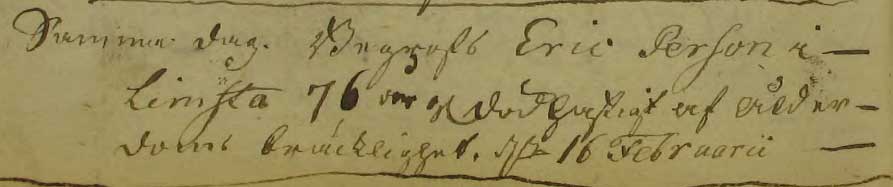 Samma dag. Begrofs Eric Person i
Limsta 76 åhr dödhastigt af ålder-
doms bräcklighet. 16 Februarii